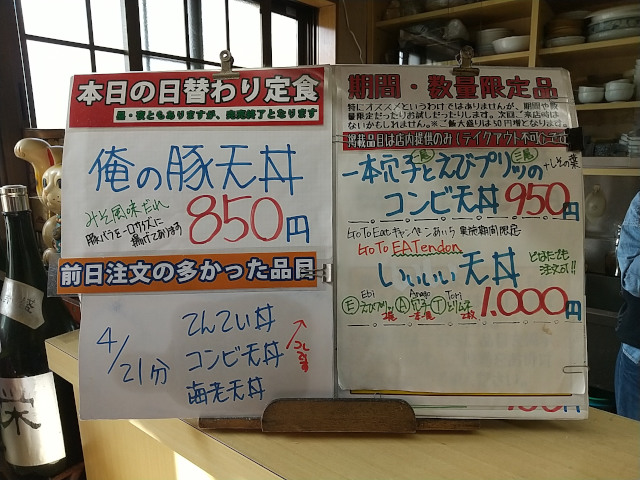 本日の日替わり定食
昼・夜ともありますが、売完終了となります
俺の豚天丼
みそ風味だれ
豚バラを一口サイズに
揚げてあります
850円
前日注文の多かった品目
4/21分
てんてい丼
コンビ天丼
海老天丼
コレです
期間・数量限定品
特にオススメというわけではありませんが、期間や数
量限定だったりお試しだったりします。次回ご来店時は
ないかもしれません。※ご飯大盛りは50円増となります。
掲載品目は店内提供のみ(テイクアウト不可)です
一本穴子とえびプリッの
コンビ天丼 950円
GoToEatキャンペーンあいち 実施期間限定
GoTo EATendon
いいいい天丼
どなたでも
注文可!!
Ebi Anago Tori
1,000円